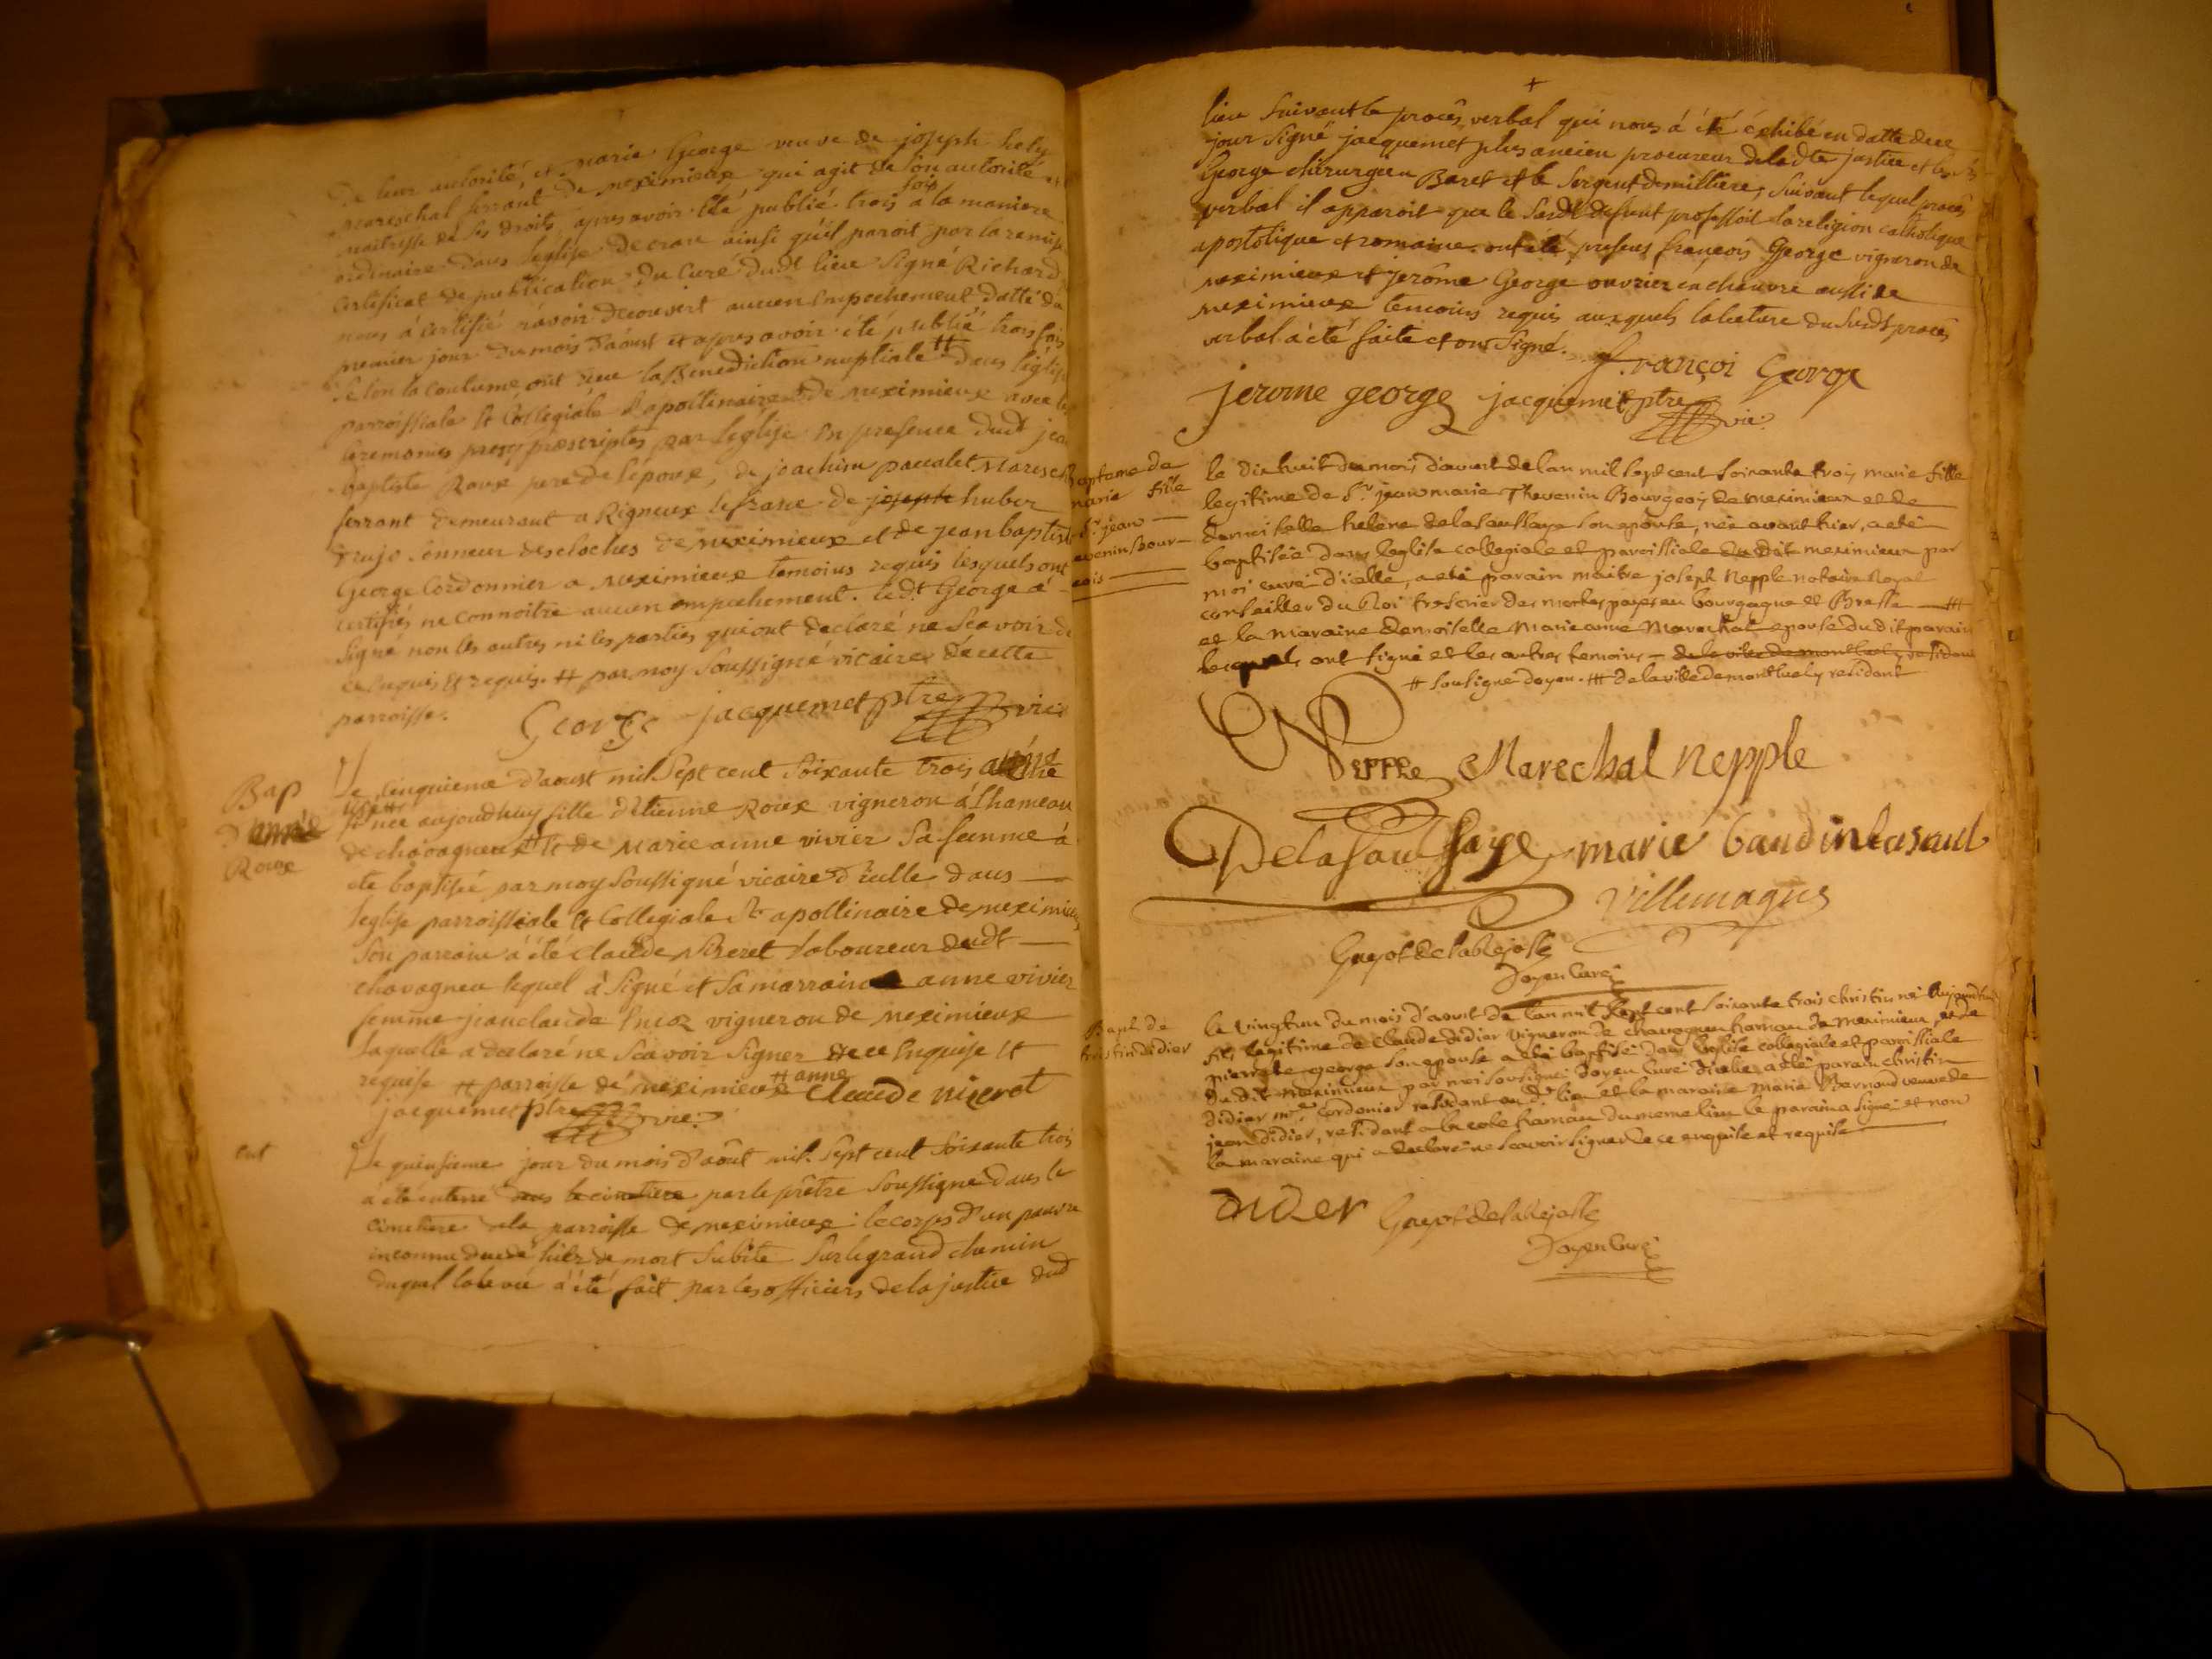 de leur autorité, et marie George veuve de joseph hely
mareschal ferrant de meximieux qui agit de son autorité et
maitresse de ses droits, apres avoir été publié trois fois a la maniere
ordinaire dans leglise de cran ainsi qu'il paroit par la remise
certificat de publication du Curé dudt lieu signé Richard
nous á certifié n'avoir decouvert aucun empechement datté du
premier jour du mois d'aóust et apres avoir été publié trois fois
selon la coutume ont reçu la Benediction nuptiale ++ dans l'églis
parroissiale et Collegiale st apollinaire de meximieux avec les
ceremonies prescriptes par l'eglise en presence dudt jean
baptiste Roux pere de l'epoux, de joachim pacalet Maresch
ferrant demeurant a Rigneux lefranc de joseph huber
drujo sonneur des cloches de meximieux et de jean baptiste
George Cordonnier a meximieux temoins requis lesquels ont
certifiés ne connoitre aucun empechement. ledt George a
signé non les autres ni les parties qui ont declaré ne scavoir de
ce enquis et requis. ++ par moy soussigné vicaire de cette
parroisse.
George jacquemet ptre vic
Bap
d'anne
Roux
Le cinquieme d'aoust mil sept cent soixante trois anne
née aujourdhuy fille d'etienne Roux vigneron á l'hameau
de chavagneux ++ et de Marie anne vivier sa femme á
ete baptisée par moy soussigné vicaire d'icelle dans
l'eglise parroissiale et Collegiale st apollinaire de meximieux
son parrain á été claude Niseret laboureur dudt
chavagneu lequel á signé et sa marraine anne vivier
femme jean claude vigneron de meximieux
laquelle a declaré ne scavoir signer de ce enquise et
requise ++ parroisse de meximieux ++ anne Claude niseret
jacquemet ptre vic.
ent
Le quinsieme jour du mois d'aôut mil sept cent soixante trois
a été enterré dans le cimetiere par le prêtre soussigné dans le
cimetiere de la parroisse de meximieux le corps d'un pauvre
inconnu decedé hier de mort subite sur le grand chemin
duquel la levée á été fait par les officiers de la justice dud
lieu suivant le procês verbal qui nous á été exhibé en datte de ce
jour signé jacquemet plus ancien procureur de ladte justice et
George chirurgien Baret et le sergent demilliere, suivant lequel procês
verbal il apparoit que le susdt defunt professoit la religion catholique
apostolique et romaine. ont été presens françois George vigneron de
meximieux et jerôme George ouvrier en chanvre aussi de
meximieux temoins requis auxquels la lecture du susdt procês
verbal á été faite et ont signé. françoi George
jerome george jacquemet ptre vic
Baptame de
marie fille
Sr jean
evenin bour
eois
le dix huit du mois d'aoust de lan mil sept cent soixante trois marie fille
legitime de Sr jean marie Thevenin Bourgeois de meximieux et de
demoiselle helene delasaussaye son epouse, née avant hier, a eté
baptisée dans leglise collegiale et paroissiale du dit meximieux par
moi curé d'icelle, a eté parain maitre joseph Nepple notaire Royal
conseiller du Roi tresorier des mortes payes en bourgogne et Bresse ++
et la maraine demoiselle Marie anne Marechal epouse du dit parain
lesquels ont signé et les autres temoins de la ville de montluel y residant
++ sousigne doyen. +++ de la ville de montluel y residant
Nepple Marechal Nepple
Delasausaye marie baudin lasaul
villemagus
Guyot delablejosse
Doyen Curé
Bapt. de
christin didier
le vingt un du mois d'aout de lan mil sept cent soixante trois christin né aujourdhui
fils legitime de claude didier vigneron de chavagneu hamau de meximieux, et de
pierrete george son epouse a eté baptisé dans leglise collegiale et paroissiale
du dit meximieux par moi sousigné doyen curé d'icelle, a eté parain christin
didier mre cordonier residant au dt lieu et la maraine marie Bernond veuve de
jean didier, residant a la cote hamau du meme lieu le parain a signé et non
la maraine qui a declaré ne scavoir signer de ce enquise et requise
Didier Guyot delablejosse
Doyen Curé